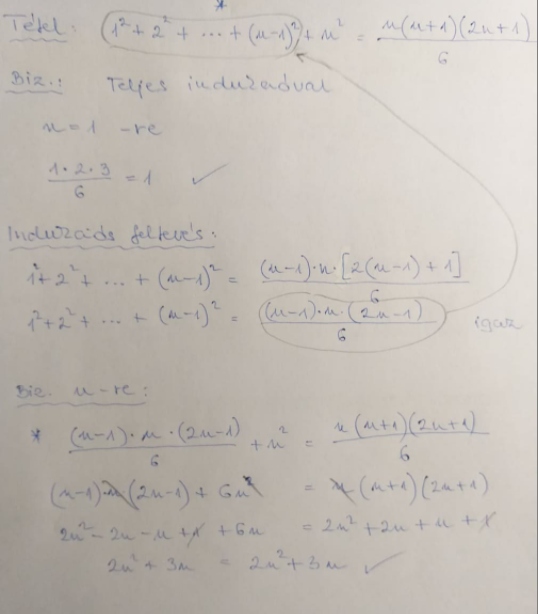 *
Tétel: (1² + 2² + ... + (n-1)²) + n² = n(n+1)(2n+1) / 6
Biz.: Teljes indukcióval
n=1 -re
1·2·3 / 6 = 1 ✓
Indukciós feltevés:
1² + 2² + ... + (n-1)² = (n-1)·n·[2(n-1)+1] / 6
1² + 2² + ... + (n-1)² = (n-1)·n·(2n-1) / 6 igaz
Biz. n-re:
* (n-1)·n·(2n-1) / 6 + n² = n(n+1)(2n+1) / 6
(n-1)·n(2n-1) + 6n² = n(n+1)(2n+1)
2n² - 2n - n + 1 + 6n = 2n² + 2n + n + 1
2n² + 3n = 2n² + 3n ✓